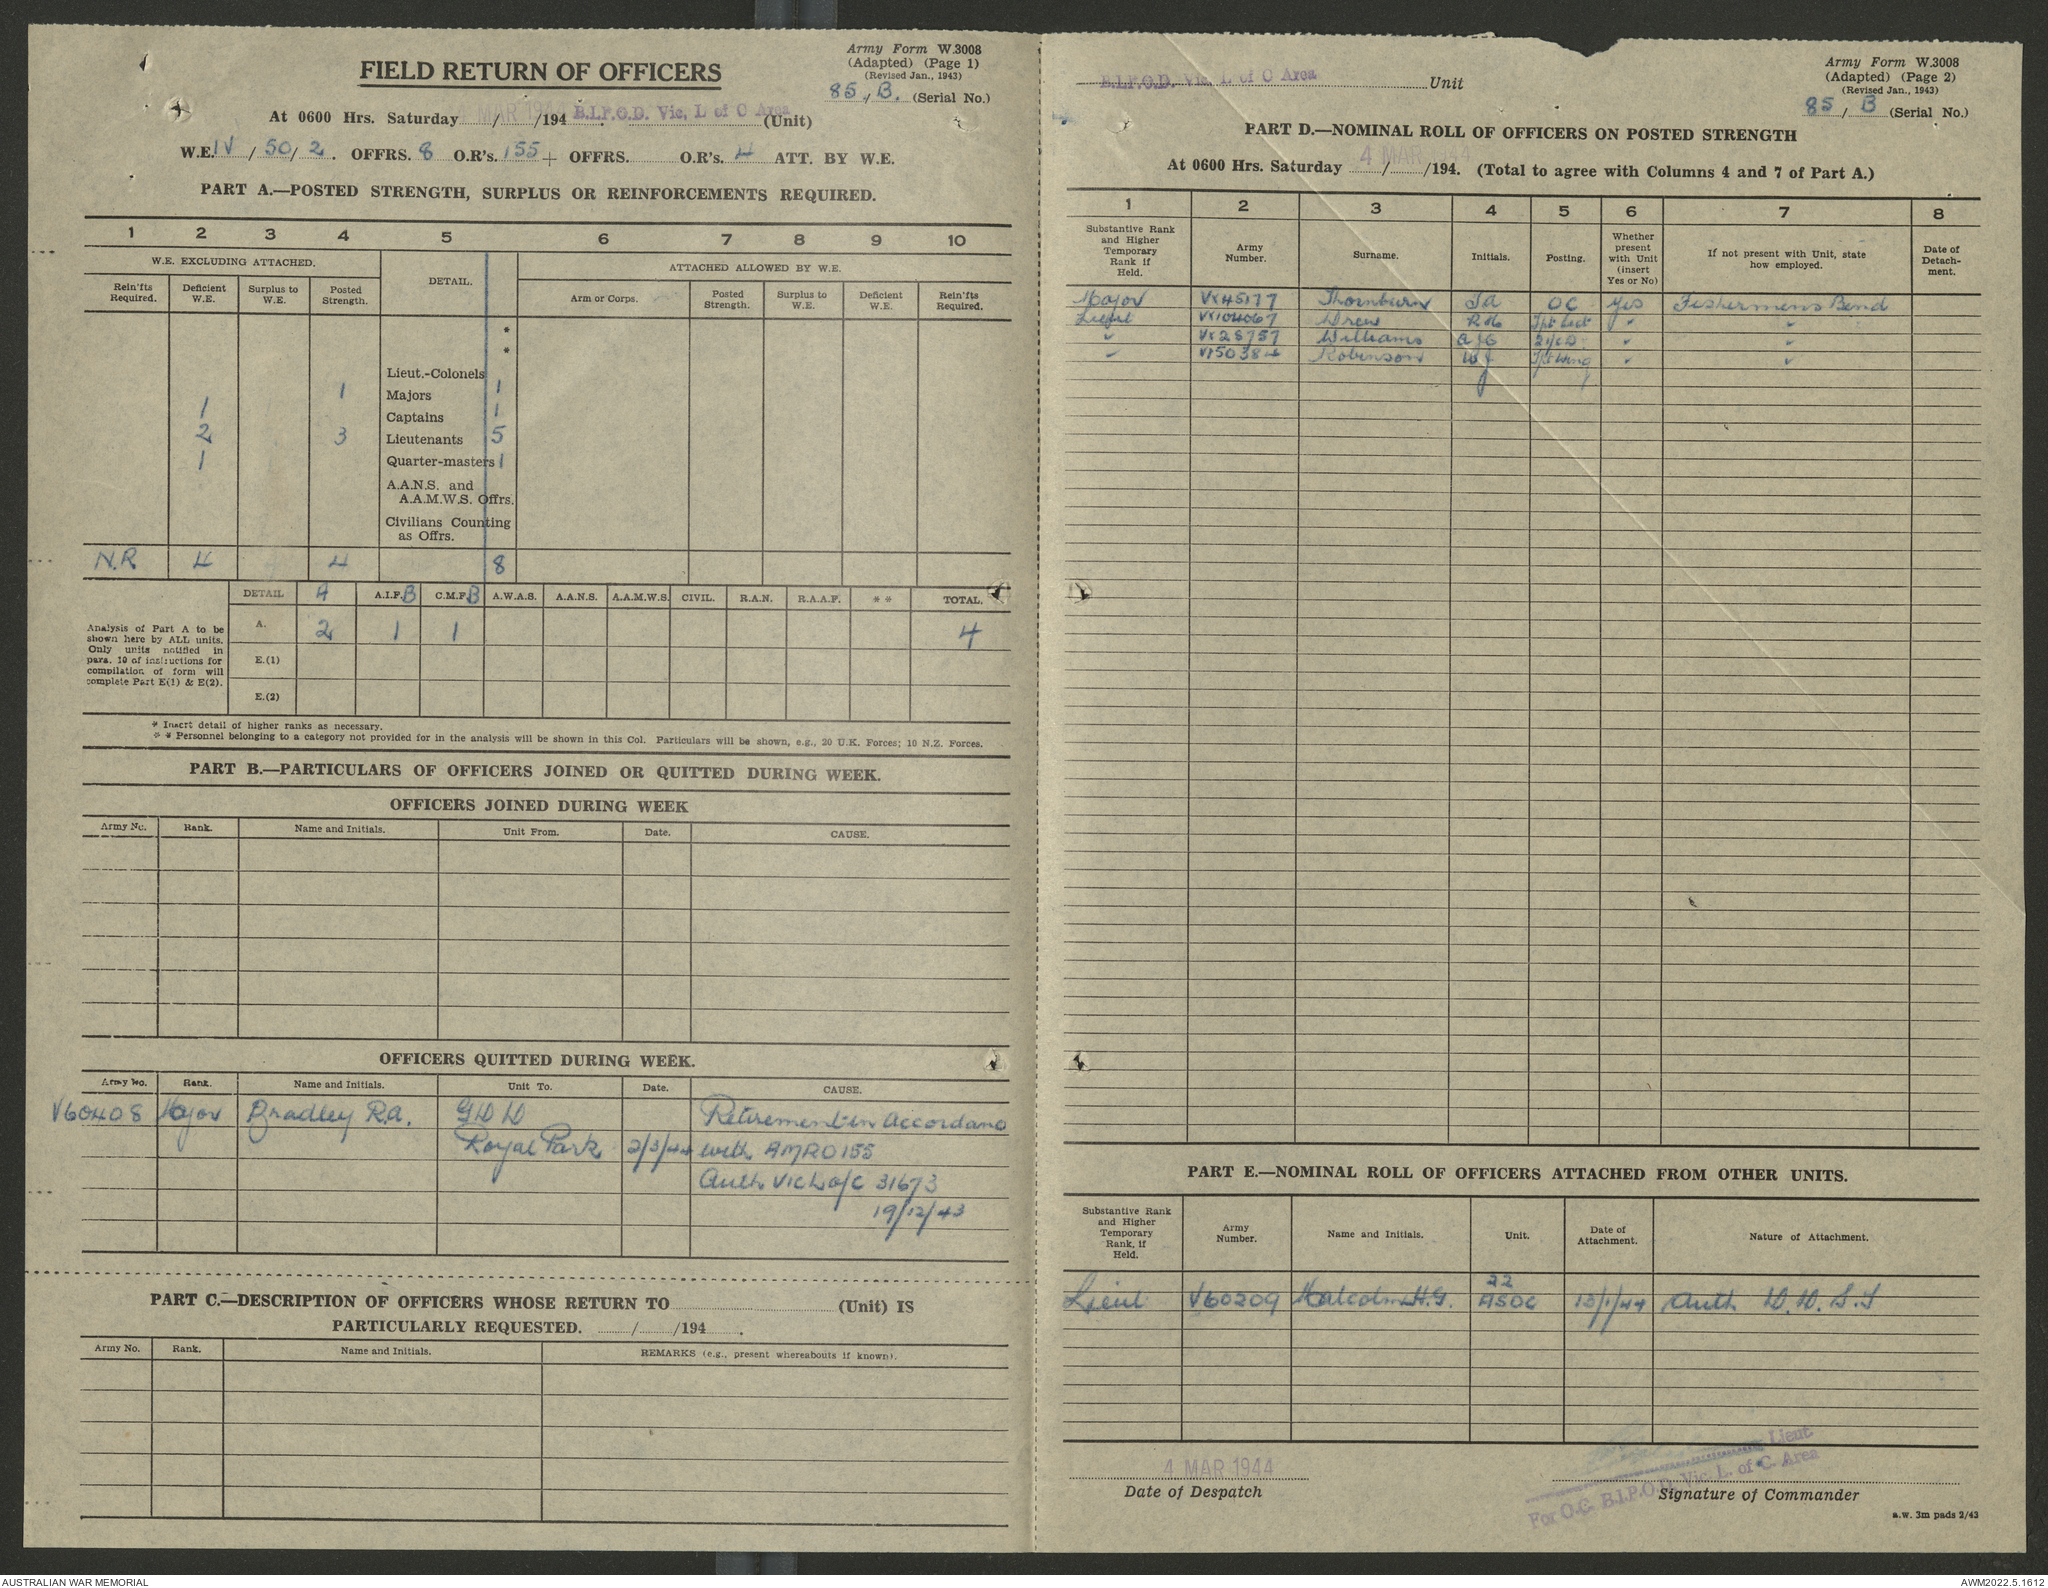 Army Form W.3008
(Adapted) (Page 1)
(Revised Jan., 1943)
FIELD RETURN OF OFFICERS
85 / B. (Serial No.)
At 0600 Hrs. Saturday MAR 1944 / /194 . B.I.P.O.D. Vic, L of C Area (Unit)
W.E. IV / 50 / 2 . OFFRS. 8 O.R's. 155 + OFFRS. O.R's. 4 ATT. BY W.E.
PART A.—POSTED STRENGTH, SURPLUS OR REINFORCEMENTS REQUIRED.
1 2 3 4 5 6 7 8 9 10
W.E. EXCLUDING ATTACHED. DETAIL. ATTACHED ALLOWED BY W.E.
Rein'fts Required. Deficient W.E. Surplus to W.E. Posted Strength. Arm or Corps. Posted Strength. Surplus to W.E. Deficient W.E. Rein'fts Required.
*
*
Lieut.-Colonels
1 Majors 1
1 Captains 1
2 3 Lieutenants 5
1 Quarter-masters 1
A.A.N.S. and
A.A.M.W.S. Offrs.
Civilians Counting
as Offrs.
N.R 4 4 8
DETAIL A A.I.F. B C.M.F. B A.W.A.S. A.A.N.S. A.A.M.W.S. CIVIL. R.A.N. R.A.A.F. * * TOTAL.
A. 2 1 1 4
E.(1)
E.(2)
Analysis of Part A to be
shown here by ALL units.
Only units notified in
para. 10 of instructions for
compilation of form will
complete Part E(1) & E(2).
* Insert detail of higher ranks as necessary.
* * Personnel belonging to a category not provided for in the analysis will be shown in this Col. Particulars will be shown, e.g., 20 U.K. Forces; 10 N.Z. Forces.
PART B.—PARTICULARS OF OFFICERS JOINED OR QUITTED DURING WEEK.
OFFICERS JOINED DURING WEEK
Army No. Rank. Name and Initials. Unit From. Date. CAUSE.
OFFICERS QUITTED DURING WEEK.
Army No. Rank. Name and Initials. Unit To. Date. CAUSE.
V60408 Major Bradley R.A. GDD Retirement in Accordance
Royal Park 2/3/44 with AMRO 155
Auth Vic L of C 31673
19/12/43
PART C.—DESCRIPTION OF OFFICERS WHOSE RETURN TO (Unit) IS
PARTICULARLY REQUESTED. / /194 .
Army No. Rank. Name and Initials. REMARKS (e.g., present whereabouts if known).
Army Form W.3008
(Adapted) (Page 2)
(Revised Jan., 1943)
B.I.P.O.D. Vic, L of C Area Unit
85 / B (Serial No.)
PART D.—NOMINAL ROLL OF OFFICERS ON POSTED STRENGTH
At 0600 Hrs. Saturday 4 MAR 1944 / /194. (Total to agree with Columns 4 and 7 of Part A.)
1 2 3 4 5 6 7 8
Substantive Rank and Higher Temporary Rank if Held. Army Number. Surname. Initials. Posting. Whether present with Unit (insert Yes or No) If not present with Unit, state how employed. Date of Detachment.
Major VX45177 Thornburn OC Yes Fishermens Bend
Lieut VX104067 Drew
VX28757 Williams
V150384 Robinson WJ
PART E.—NOMINAL ROLL OF OFFICERS ATTACHED FROM OTHER UNITS.
Substantive Rank and Higher Temporary Rank, if Held. Army Number. Name and Initials. Unit. Date of Attachment. Nature of Attachment.
22
Lieut V60209 Malcolm H.G. ASOC 13/1/44 Auth D.D.S.T
4 MAR 1944
Date of Despatch
Lieut
For O.C. B.I.P.O.D. Vic. L. of C. Area
Signature of Commander
a.w. 3m pads 2/43
AUSTRALIAN WAR MEMORIAL
AWM2022.5.1612